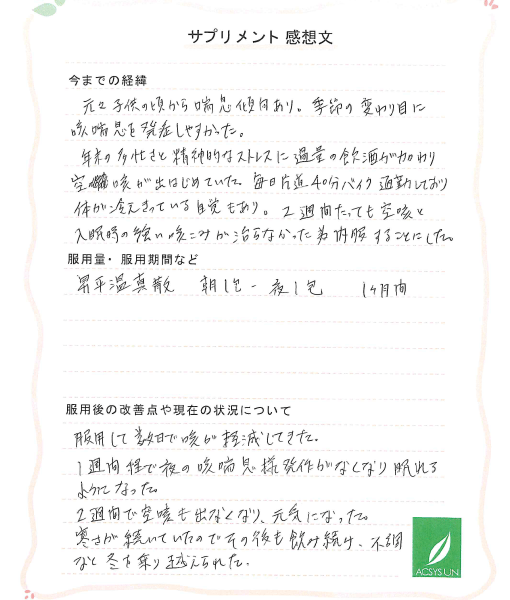 サプリメント 感想文
今までの経緯
元々子供の頃から喘息傾向あり。季節の変わり目に
咳喘息を発症しやすかった。
年末の多忙さと精神的なストレスに過量の飲酒が加わり
空咳が出はじめていた。毎日片道40分バイク通勤しており
体が冷えきっている自覚もあり。2週間たっても空咳と
入眠時の強い咳こみが治らなかった為内服することにした。
服用量・服用期間など
昇平温真散 朝1包-夜1包 1ヶ月間
服用後の改善点や現在の状況について
服用して数日で咳が軽減してきた。
1週間程で夜の咳喘息様発作がなくなり眠れる
ようになった。
2週間で空咳も出なくなり、元気になった。
寒さが続いていたのでその後も飲み続け、不調
なく冬を乗り越えられた。
ACSYSUN